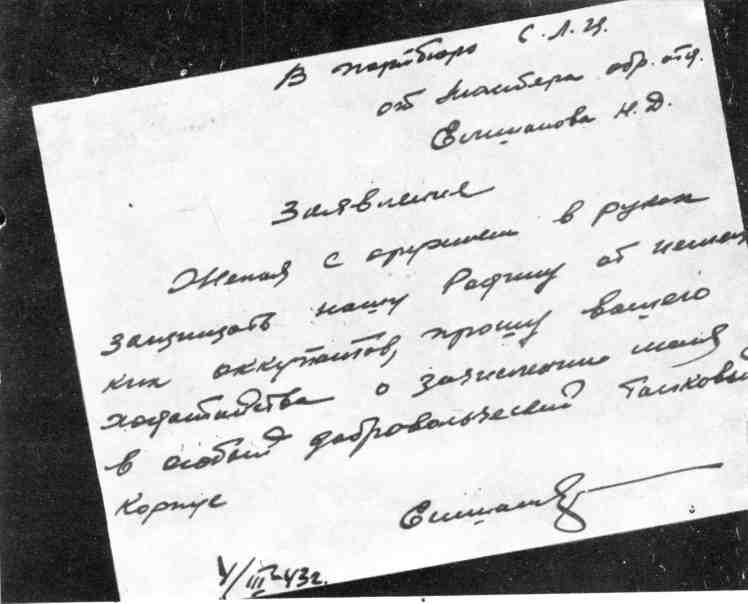 В партбюро С.Л.Ц.
от мастера обр. отд.
Елишанова Н.Д.
Заявление
Желая с оружием в руках
защищать нашу Родину от немец
ких оккупантов, прошу вашего
ходатайства о зачислении меня
в особый добровольческий танковый
корпус
4/III-43г.